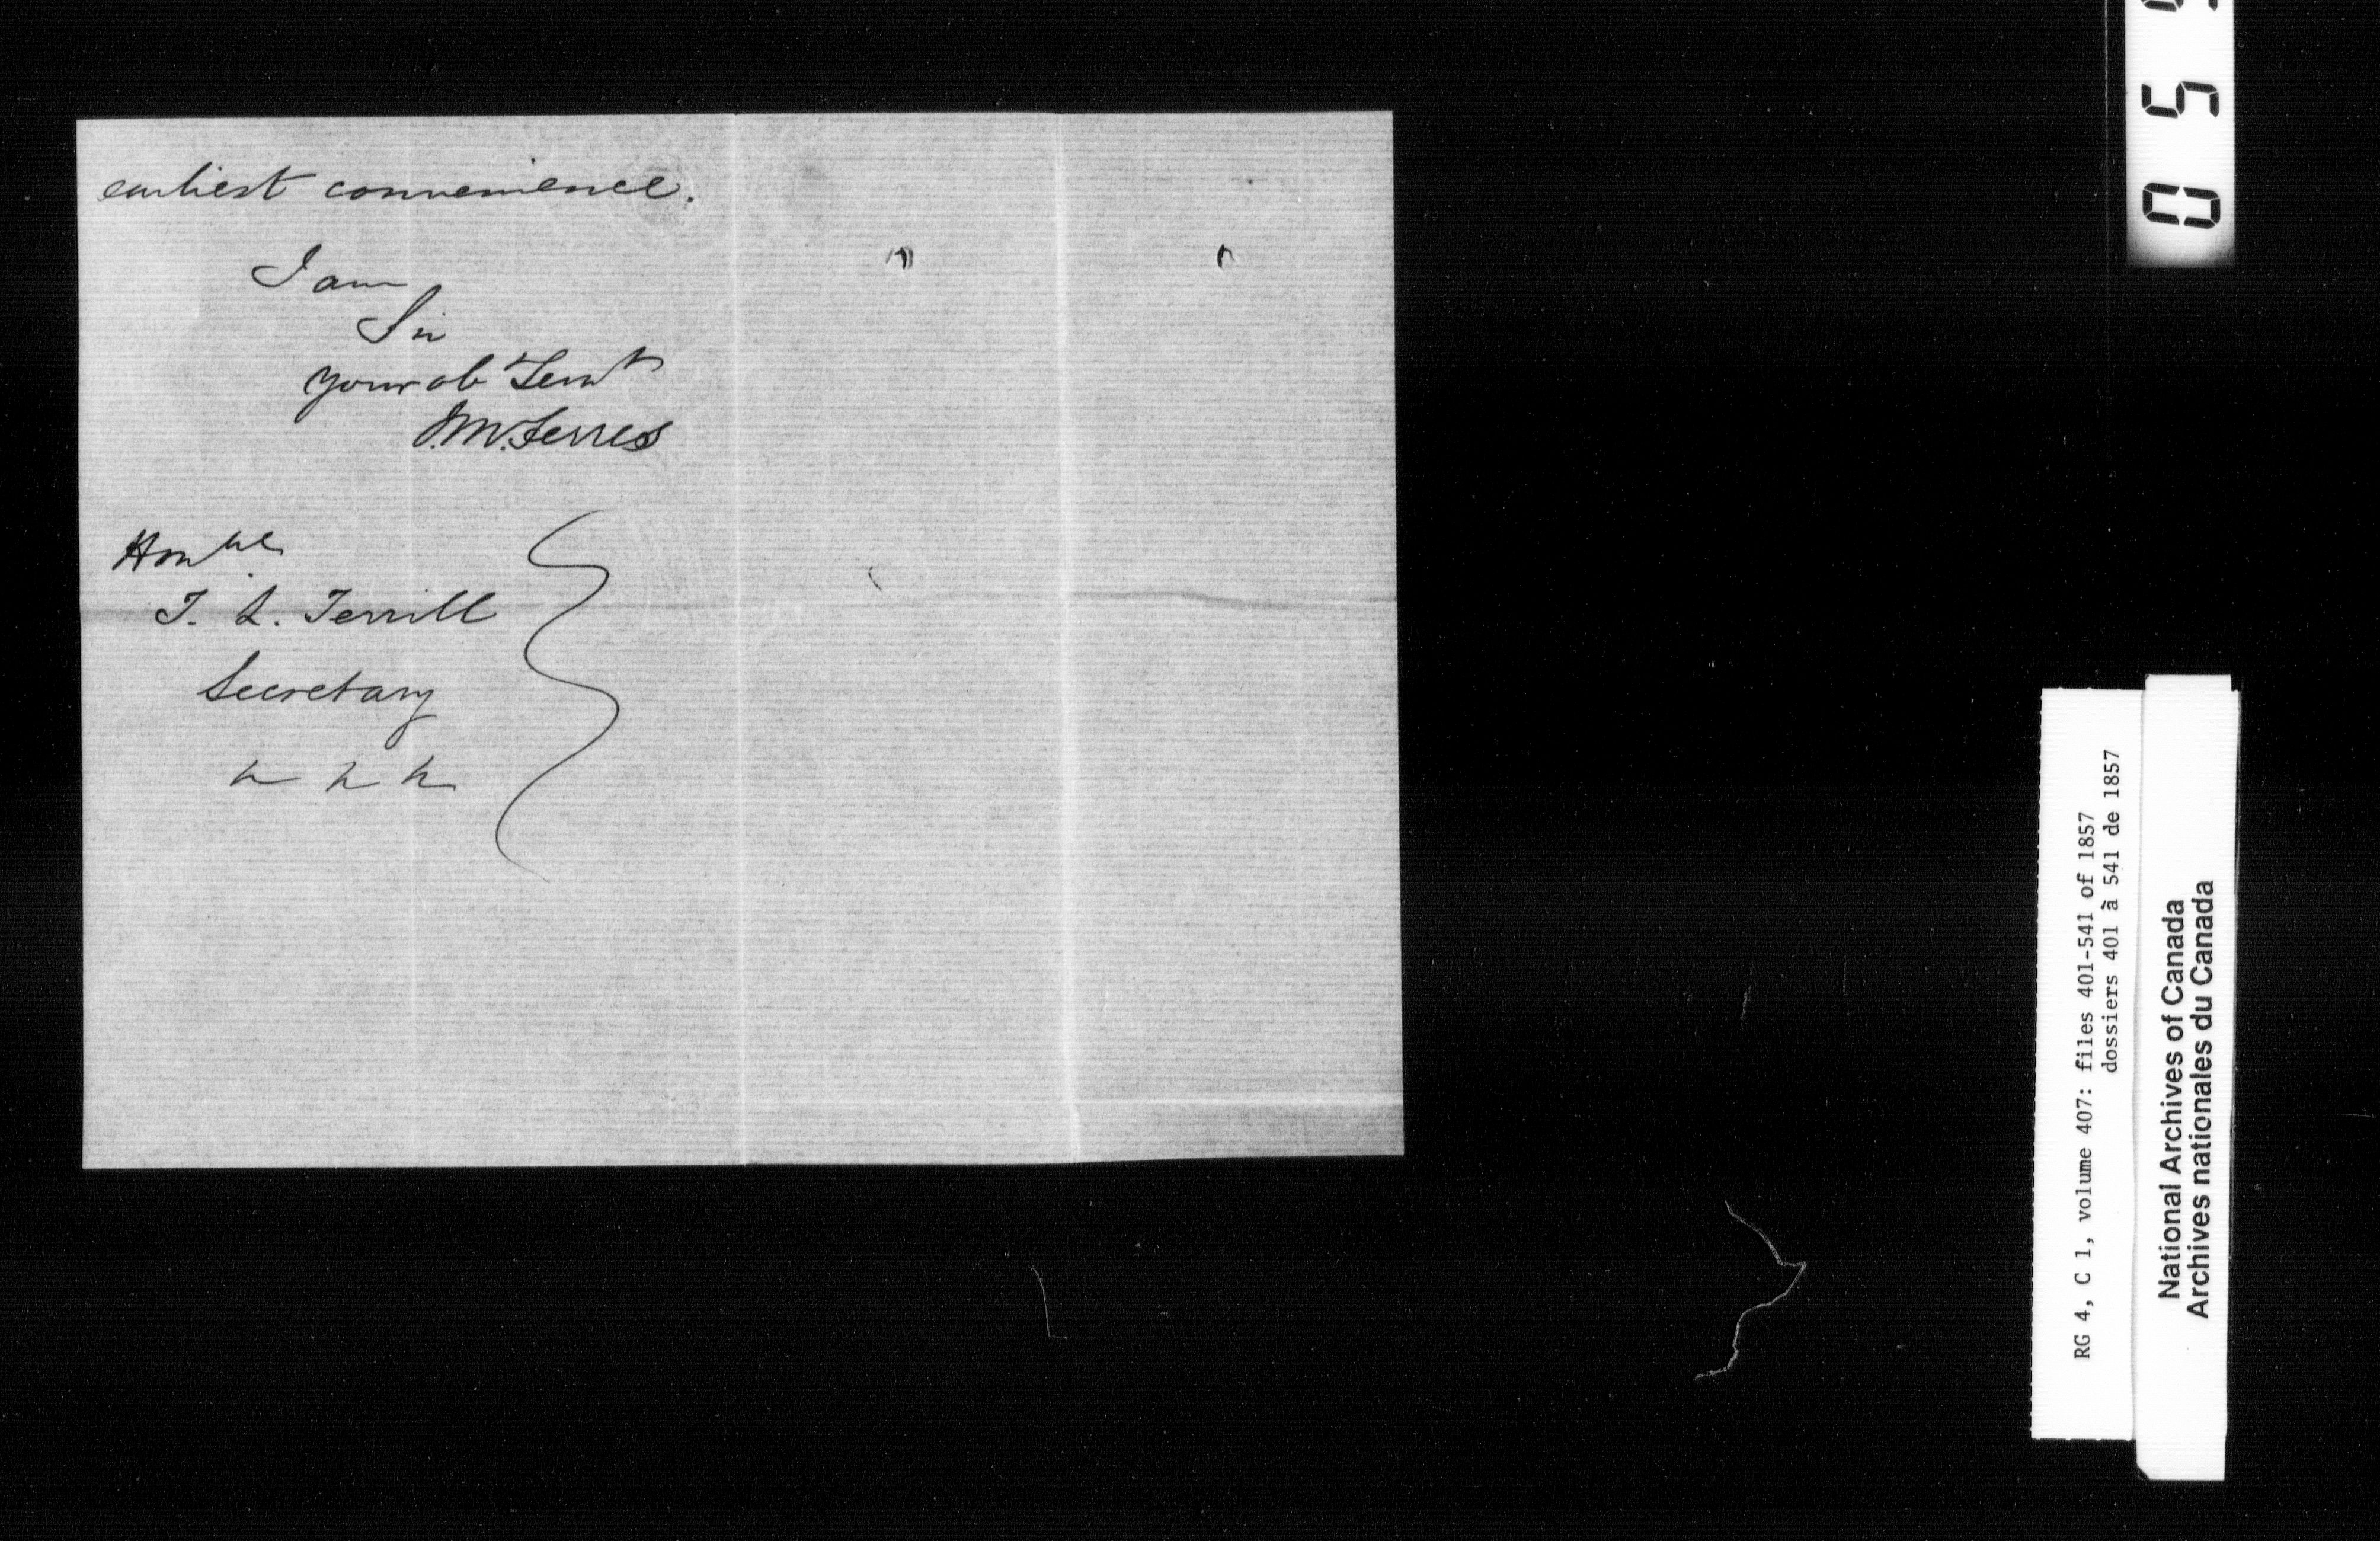 earliest convenience.
I am
Sir
your ob Servt
J.M. Ferres
Honble
T. L. Terrill
Secretary
&c &c &c
0 5 9
RG 4, C 1, volume 407: files 401-541 of 1857
dossiers 401 à 541 de 1857
National Archives of Canada
Archives nationales du Canada